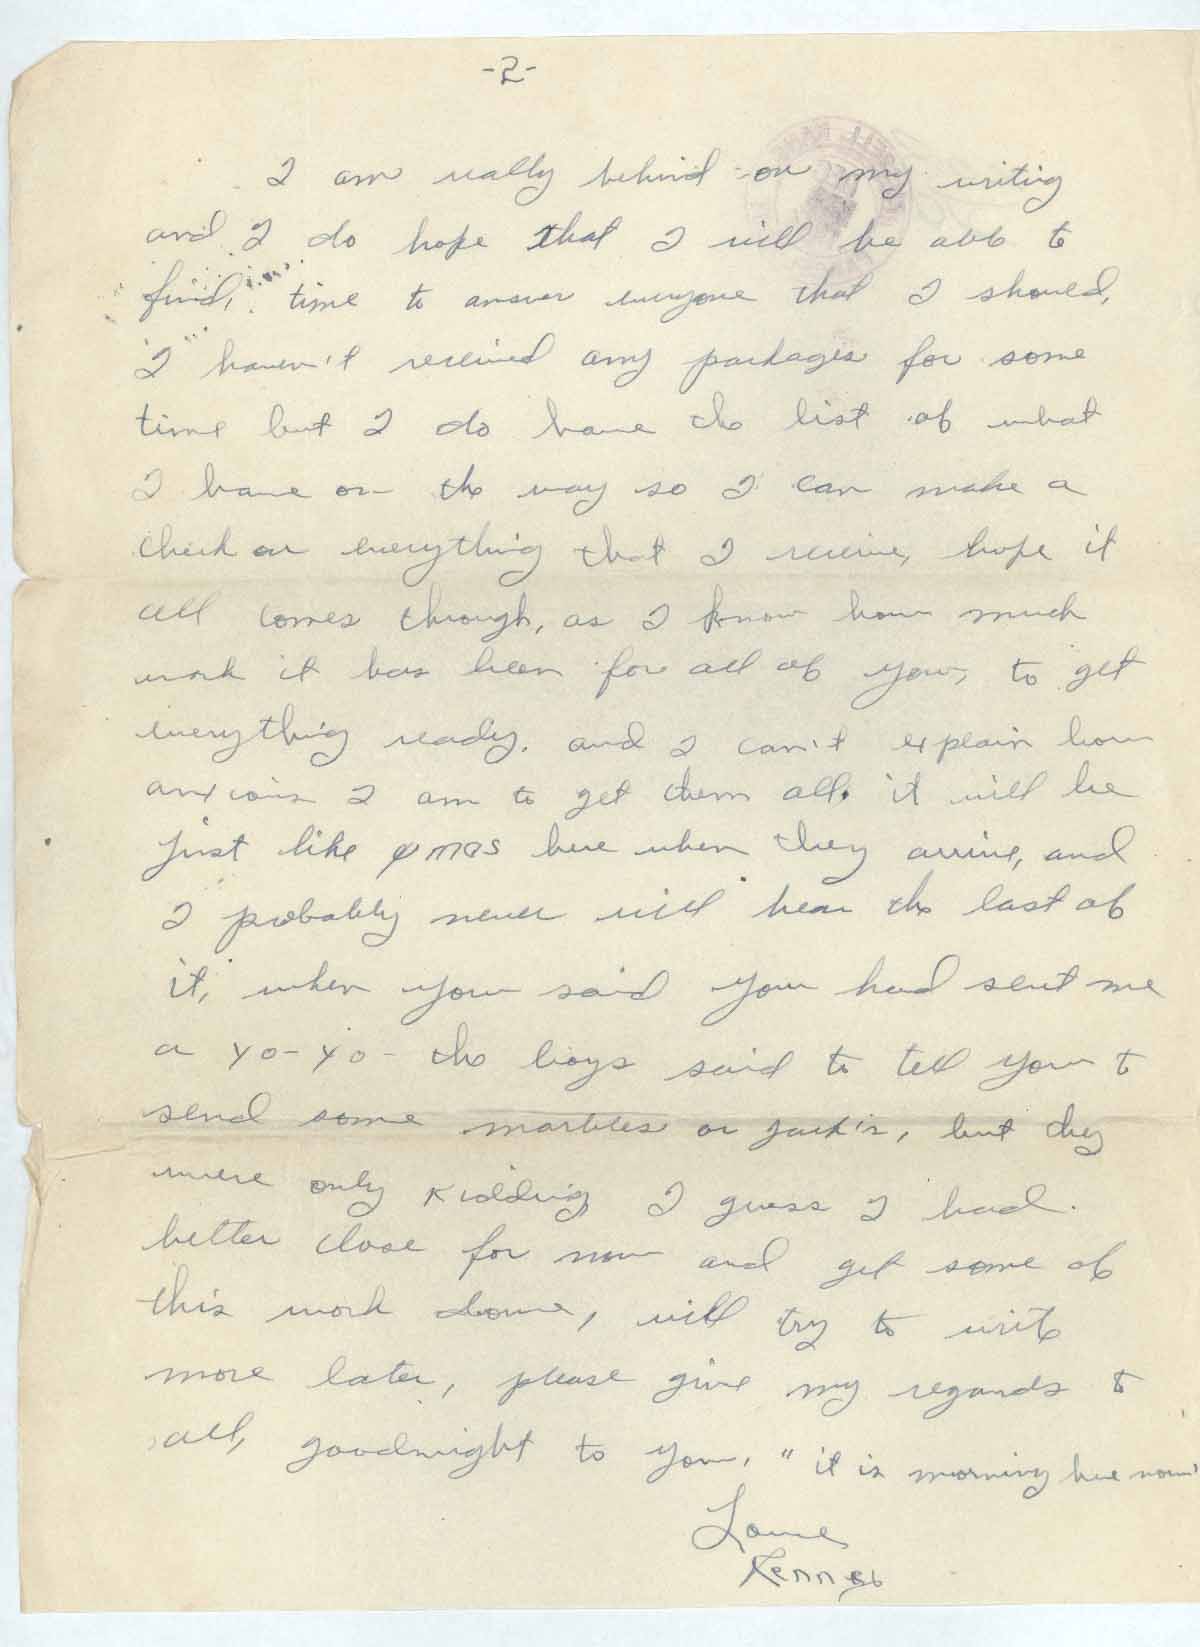 -2-
I am really behind on my writing
and I do hope that I will be able to
find, time to answer everyone that I should,
I haven't received any packages for some
time but I do have the list of what
I have on the way so I can make a
check on everything that I receive, hope it
all comes through, as I know how much
work it has been for all of you, to get
everything ready. and I can't explain how
anxious I am to get them all. it will be
just like xmas here when they arrive, and
I probably never will hear the last of
it, when you said you had sent me
a yo-yo- the boys said to tell you to
send some marbles or jack's, but they
were only kidding, I guess I had.
better close for now and get some of
this work done, will try to write
more later, please give my regards to
all, goodnight to you, "it is morning here now"
Love